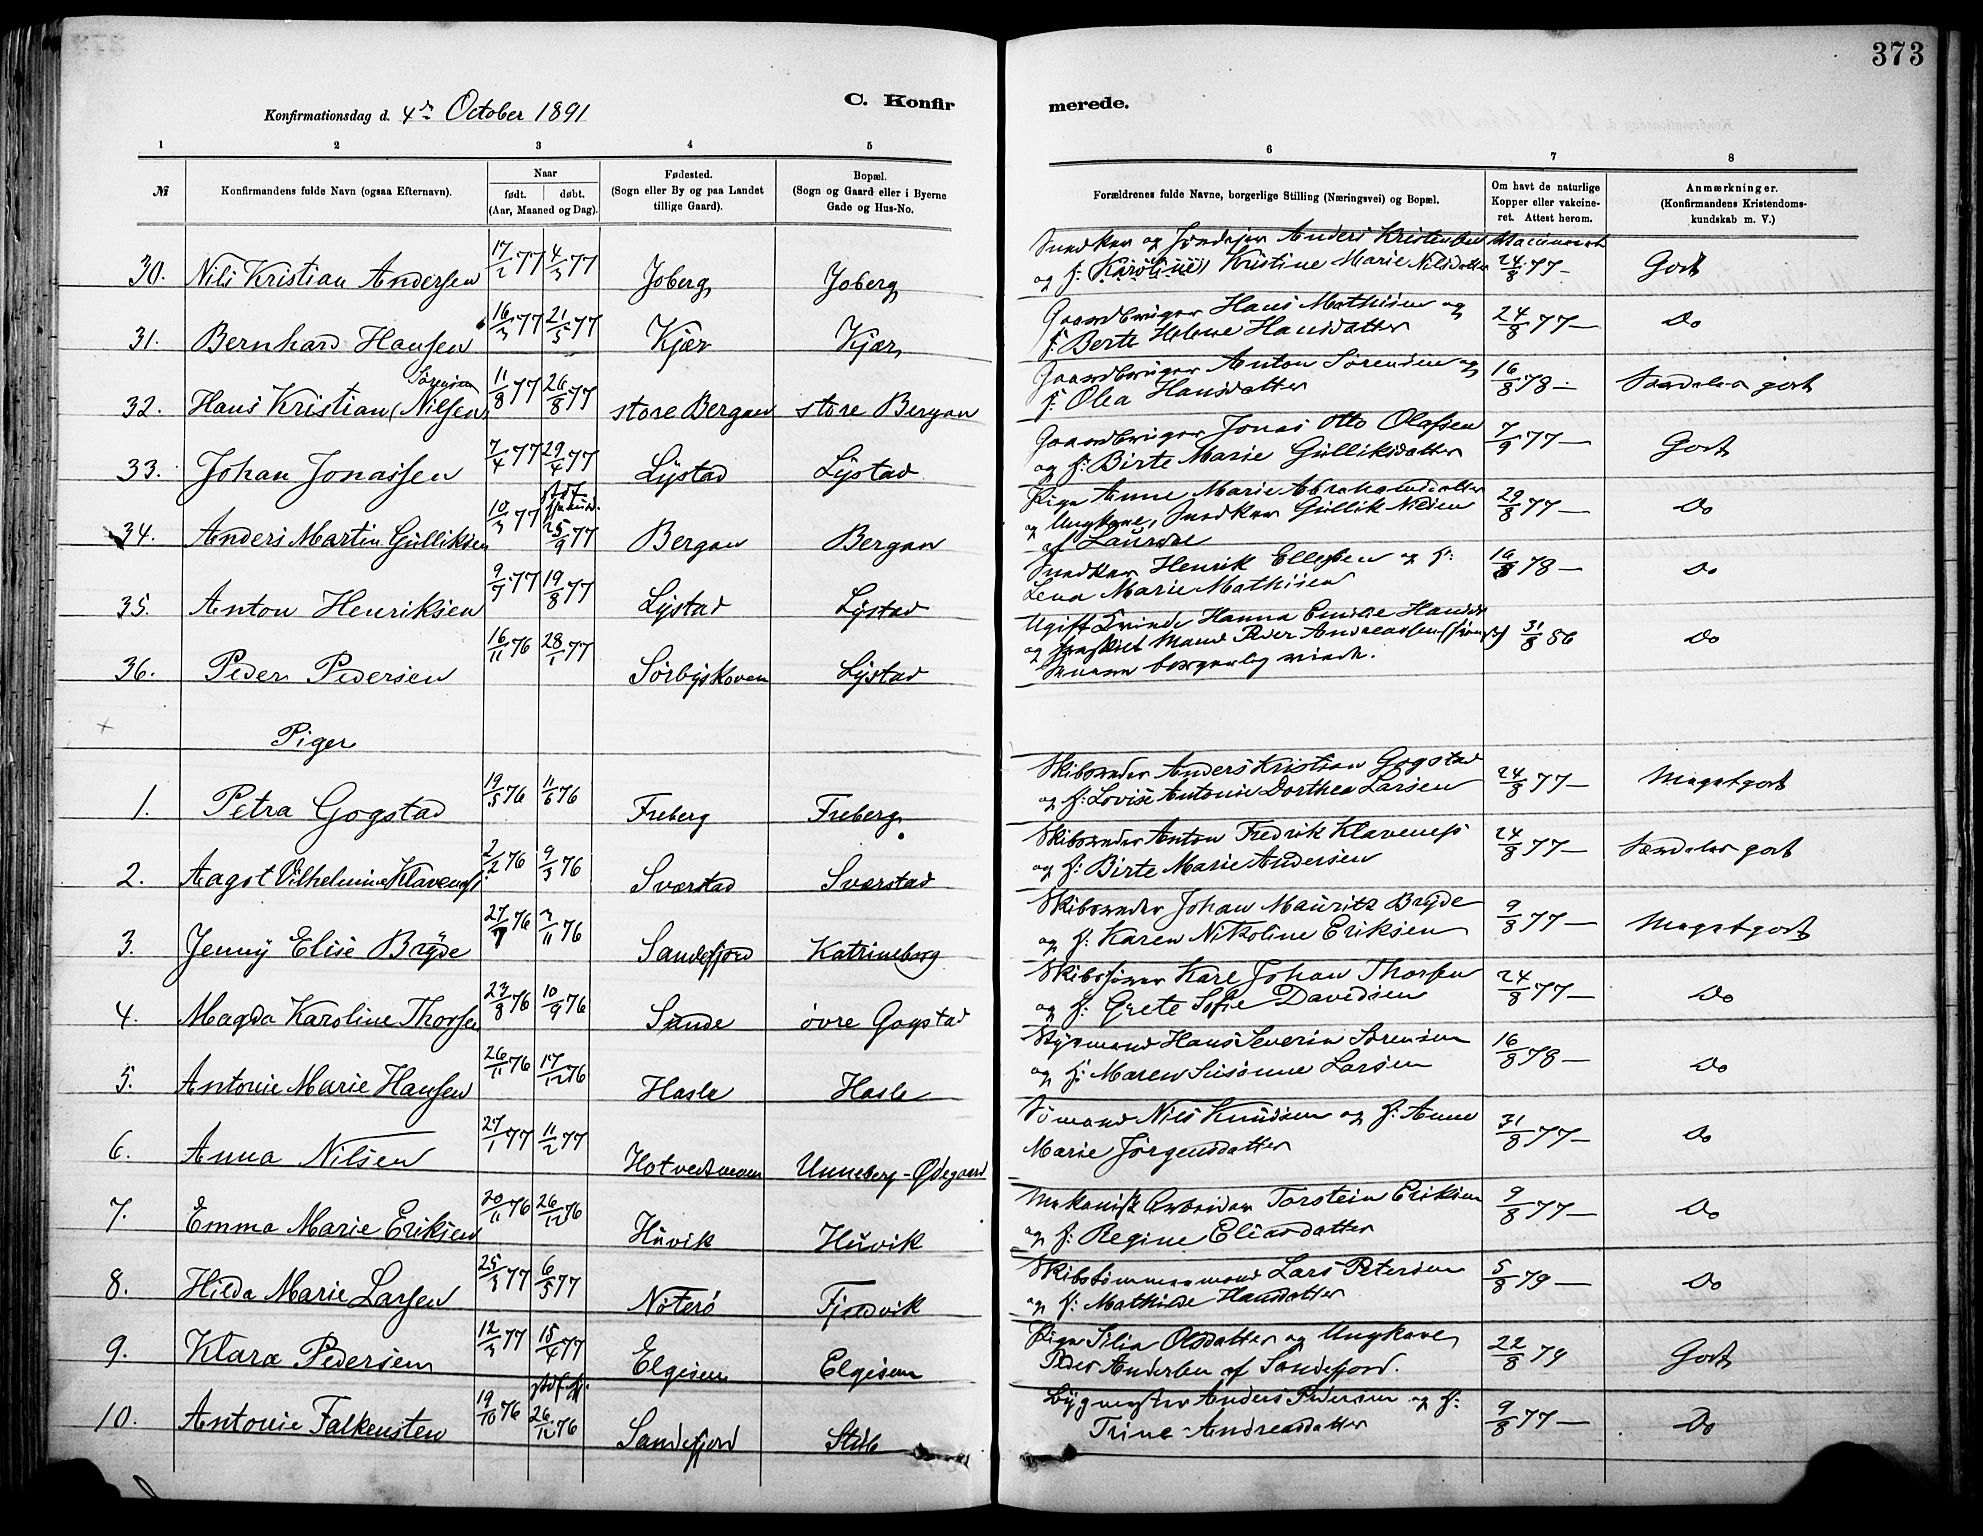 373
C. Konfirmerede.
Konfirmationsdag d. 4de October 1891
1 2 3 4 5 6 7 8
№
Konfirmandens fulde Navn (ogsaa Efternavn).
Naar
født. døbt.
(Aar, Maaned og Dag).
Fødested.
(Sogn eller By og paa Landet
tillige Gaard).
Bopæl.
(Sogn og Gaard eller i Byerne
Gade og Hus-No.
Forældrenes fulde Navne, borgerlige Stilling (Næringsvei) og Bopæl.
Om havt de naturlige
Kopper eller vakcine-
ret. Attest herom.
Anmærkninger.
(Konfirmandens Kristendoms-
kundskab m. V.)
30. Nils Kristian Andersen 17/2 77 4/3 77 Joberg Joberg
Anders Kristensen
og f: Karoline Kristine Marie Nilsdatter 24/8 77 — Godt
31. Bernhard Hansen 16/3 77 21/5 77 Kjær Kjær
Gaardbruger Hans Mathisen og
f: Berte Helene Hansdatter 24/8 77 — Do
32. Hans Kristian (Nilsen Sørensen 11/8 77 26/8 77 store Bergan store Bergan
Gaardbruger Anton Sørensen og
f: Olea Hansdatter 16/8 78 — Særdeles godt
33. Johan Jonassen 7/4 77 29/4 77 Lystad Lystad
Gaardbruger Jonas Otto Olafsen
og f: Birte Marie Gulliksdatter 7/9 77 — Godt
34. Anders Martin Gulliksen 10/3 77 25/9 77 Bergan Bergan
Pige Anne Marie Abrahamsdatter
og Ungkarl, Snedker Gullik Nilsen
af Laurdal 29/8 77 — Do
35. Anton Henriksen 9/7 77 19/8 77 Lystad Lystad
Snedker Henrik Ellefsen og f:
Lena Marie Mathisen 16/8 78 — Do
36. Peder Pedersen 16/11 76 28/1 77 Sørbyskoven Lystad
Ugift Kvinde Hanna Emilie Hansdr
og fraskilt Mand Peder Andreassen
borgerlig viede. 31/8 86 Do
Piger
1. Petra Gogstad 19/5 76 11/6 76 Freberg Freberg
Skibsreder Anders Kristian Gogstad
og f: Lovise Antonie Dorthea Larsen 24/8 77 — Megetgodt
2. Aagot Vilhelmine Klavenes 2/2 76 9/3 76 Sverstad Sverstad
Skibsreder Anton Fredrik Klaveness
og f: Birte Marie Andersen 24/8 77 — Særdeles godt
3. Jenny Elise Bryde 27/7 76 3/11 76 Sandefjord Katrineborg
Skibsreder Johan Mauritz Bryde
og f: Karen Nikoline Eriksen 9/8 77 — Megetgodt
4. Magda Karoline Thorsen 23/8 76 10/9 76 Sunde øvre Gogstad
Skibsfører Karl Johan Thorsen
og f: Grete Sofie Davidsen 24/8 77 — Do
5. Antonie Marie Hansen 26/11 76 17/12 76 Hasle Hasle
Styrmand Hans Severin Sørensen
og f: Maren Susanne Larsen 16/8 78 — Do
6. Anna Nilsen 27/1 77 11/2 77 Unneberg-Ødegaard
Sømand Nils Knudsen og f: Anne
Marie Jørgensdatter 31/8 77 — Do
7. Emma Marie Eriksen 20/11 76 26/12 76 Huvik Huvik
Mekanisk Arbeider Torstein Eriksen
og f: Regine Eliasdatter 9/8 77 — Do
8. Hilda Marie Larsen 25/3 77 6/5 77 Nøterø Fjeldvik
Skibstømmermand Lars Petersen
og f: Mathilde Hansdatter 5/8 79 — Do
9. Klara Pedersen 12/3 77 15/4 77 Elgesem Elgesem
Pige Olsdatter og Ungkarl
Peder Andersen af Sandefjord. 22/8 79 Godt
10. Antonie Falkensten 19/10 76 26/12 76 Sandefjord Stub
Bygmester Anders Pedersen og f:
Trine Andreasdatter 9/8 77 — Do